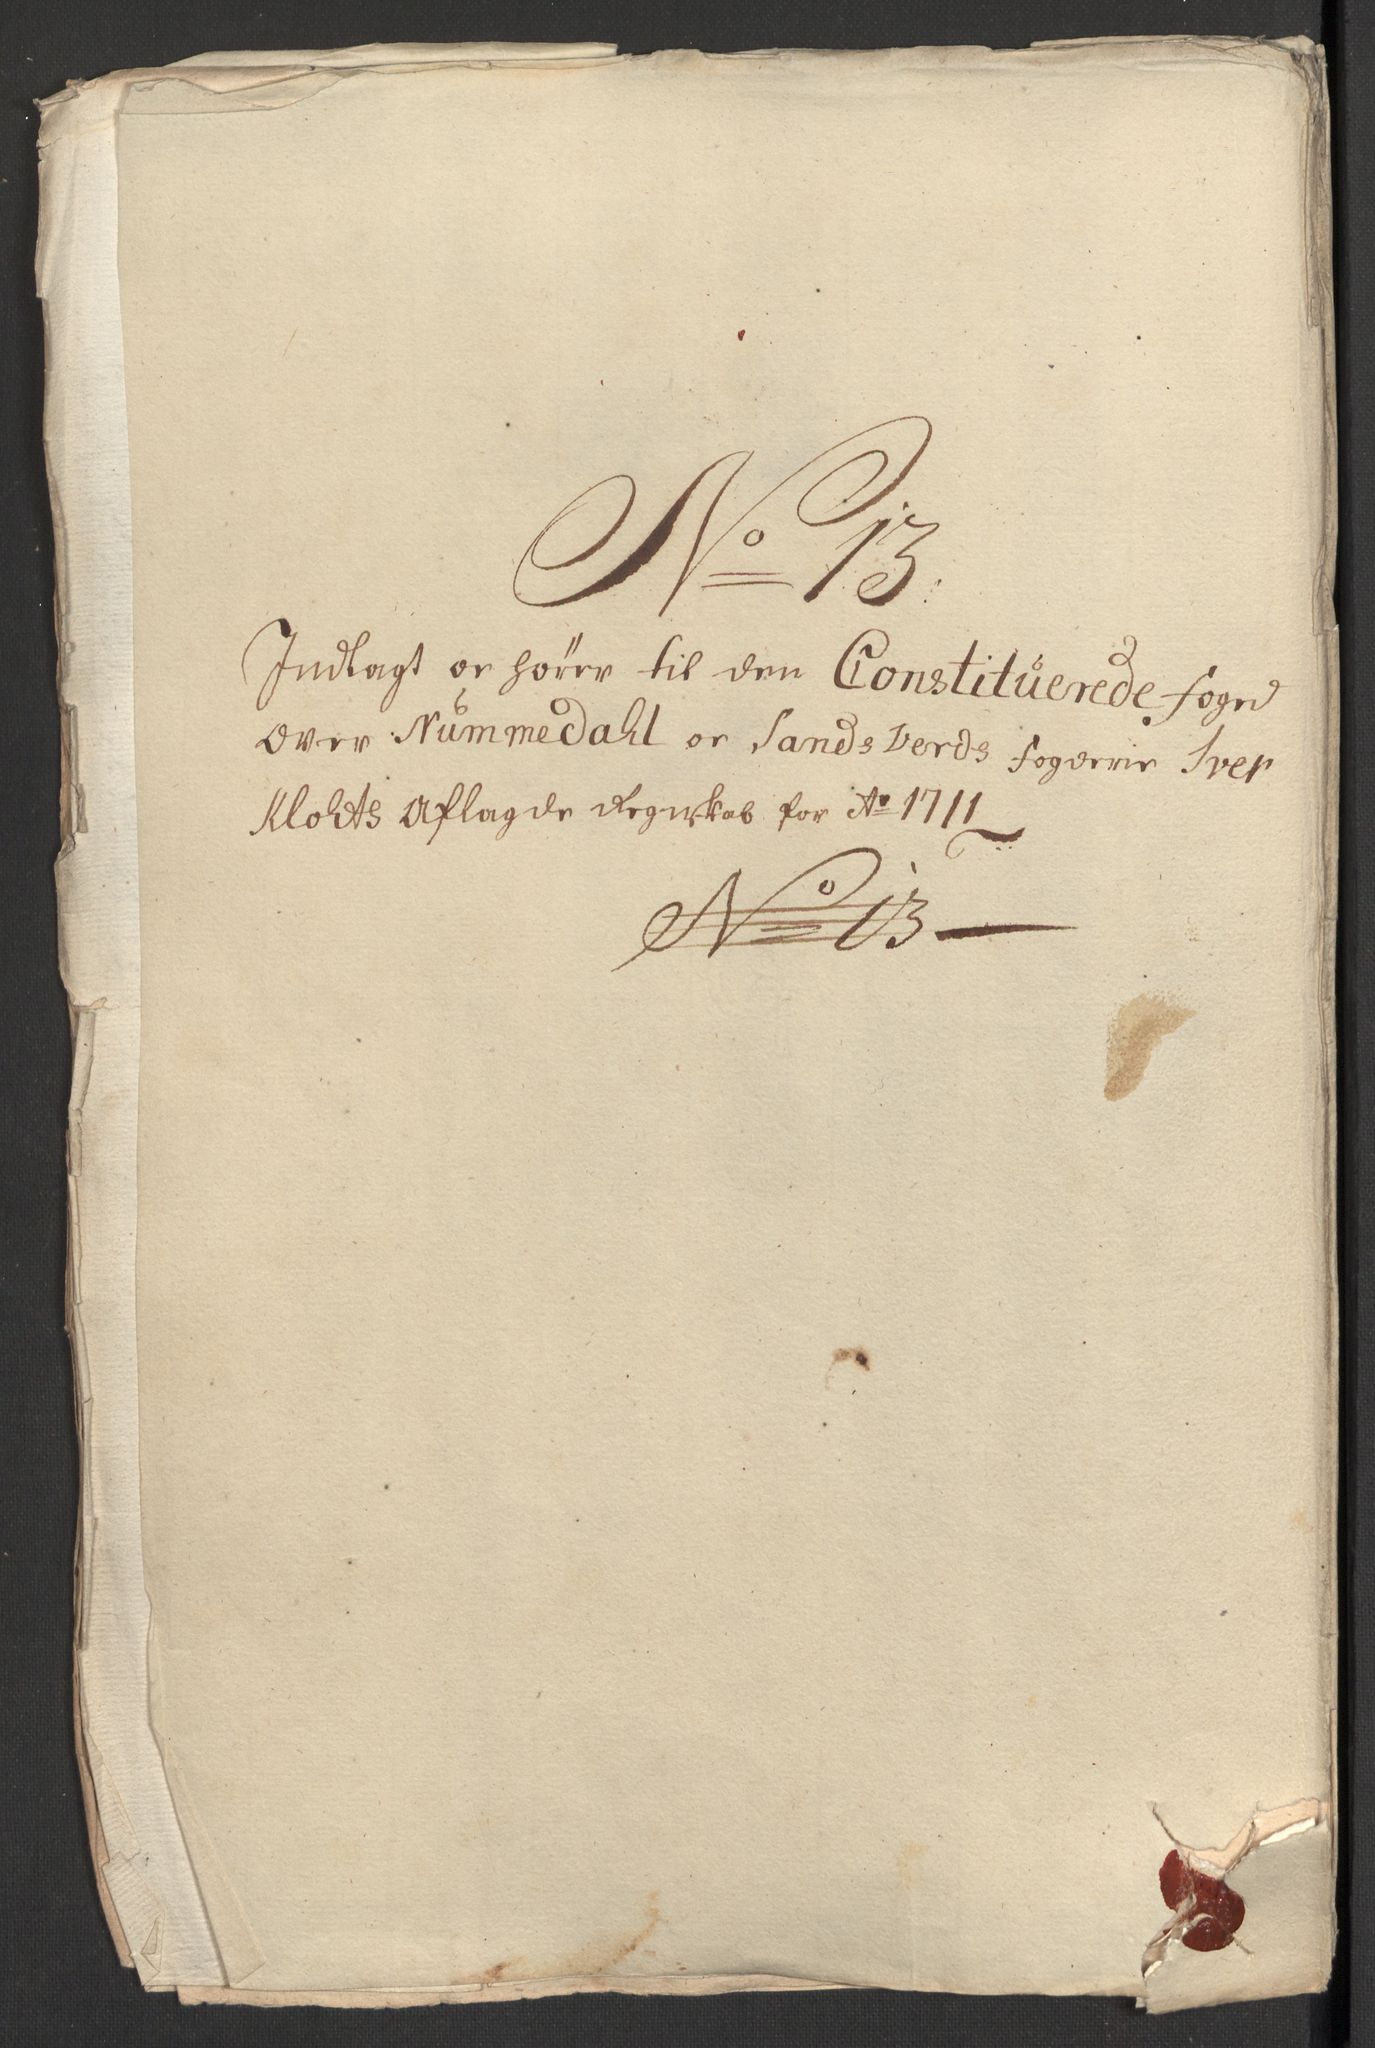 No 13.
Indlagt oc hører til den Constitüerede foged
Over Nümmedahl oc Sands Verds fogderie Iver
Klohts Aflagde Regnskab for Ao 1711
No 13